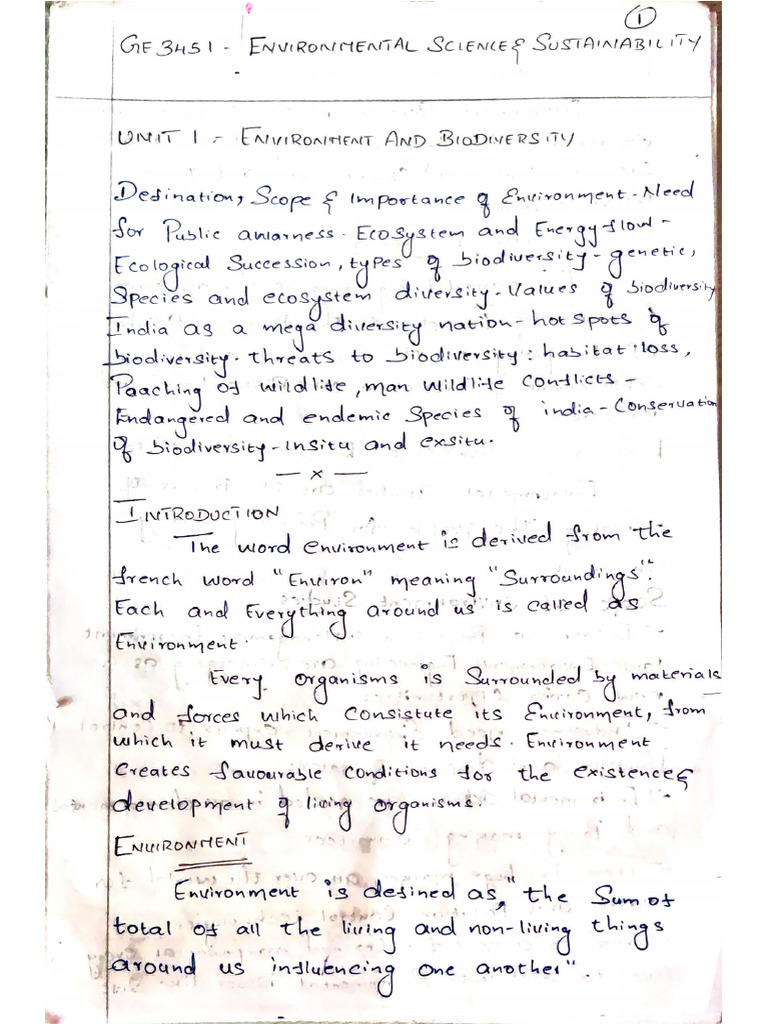 1
GE3451 - ENVIRONMENTAL SCIENCE & SUSTAINABILITY
UNIT 1 - ENVIRONMENT AND BIODIVERSITY
Defination, Scope & Importance of Environment - Need
for Public awarness. Ecosystem and Energy flow -
Ecological Succession, types of biodiversity - genetic,
Species and ecosystem diversity - Values of biodiversity
India as a mega diversity nation - hot spots of
biodiversity. threats to biodiversity: habitat loss,
Paaching of wildlife, man wildlife conflicts -
Endangered and endemic Species of india - Conservation
of biodiversity - insitu and exsitu.
— x —
INTRODUCTION
The word environment is derived from the
french word "Environ" meaning "Surroundings".
Each and Everything around us is called as
Environment.
Every organisms is Surrounded by materials
and forces which consistute its Environment, from
which it must derive it needs. Environment
creates favourable conditions for the existence &
development of living organisms.
ENVIRONMENT
Environment is defined as, "the Sum of
total of all the living and non-living things
around us influencing one another".